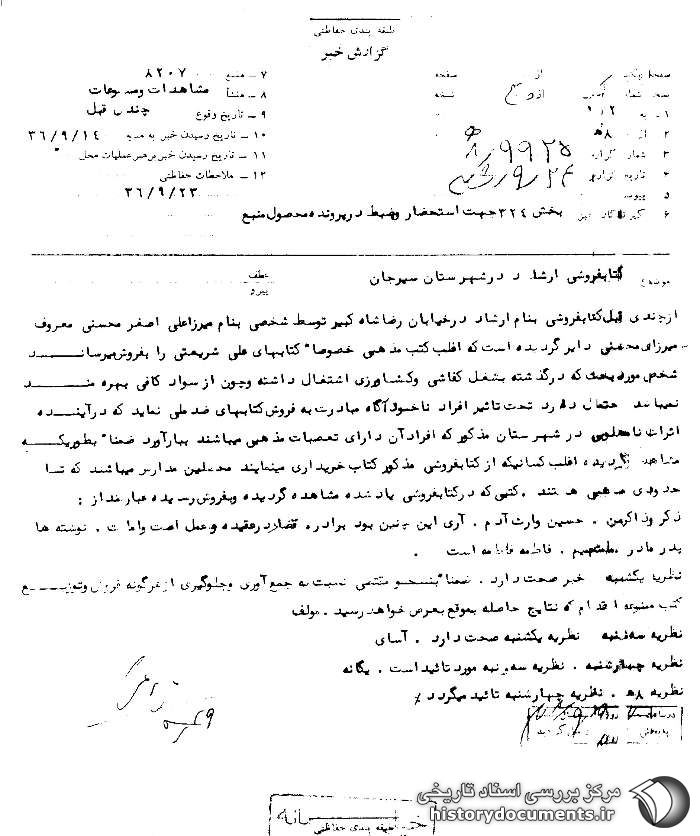 طبقه بندی حفاظتی
گزارش خبر
۷ ــ منبع ۸۲۰۷
۸ ــ منشأ مشاهدات و مسموعات
۹ ــ تاریخ وقوع چندی قبل
۱۰ ــ تاریخ رسیدن خبر به منبع ۳۶/۹/۱۴
۱۱ ــ تاریخ رسیدن خبر برهبر عملیات محل "
۱۲ ــ ملاحظات حفاظتی
۳۶/۹/۲۳
صفحه از صفحه
نسخه شماره از نسخه
۱ ــ به
۲ ــ از ۸ﻫ
۳ ــ شماره گزارش ۹۹۲۵/ﻫ۸
۴ ــ تاریخ گزارش
۵ ــ پیوست
۶ ــ گیرندگان خبر بخش ۳۲۴ جهت استحضار وضبط در پرونده محصول منبع
موضوع کتابفروشی ارشاد در شهرستان سیرجان
عطف
پیرو
از چندی قبل کتابفروشی بنام ارشاد در خیابان رضاشاه کبیر توسط شخصی بنام میرزاعلی اصغر محسنی معروف
میرزای محسنی دایر گردیده است که اغلب کتب مذهبی خصوصا" کتابهای علی شریعتی را بفروش میرساند
شخص مورد بحث که در گذشته بشغل کفاشی و کشاورزی اشتغال داشته و چون از سواد کافی بهره مند
نمیباشد احتمال دارد تحت تاثیر افراد ناخودآگاه مبادرت به فروش کتابهای ضد ملی نماید که در آینده
اثرات نامطلوبی در شهرستان مذکور که افراد آن دارای تعصبات مذهبی میباشند ببار آورد ضمنا" بطوریکه
مشاهده گردیده اغلب کسانیکه از کتابفروشی مذکور کتاب خریداری مینمایند محصلین مدارس میباشند که تا
حدودی مذهبی هستند . کتبی که در کتابفروشی یاد شده مشاهده گردیده و بفروش رسیده عبارتند از :
ذکر و ذاکرین . حسین وارث آدم . آری این چنین بود برادر . تضاد در عقیده و عمل امت و امامت . نوشته ها
پدر مادر ما متهمیم . فاطمه فاطمه است .
نظریه یکشنبه خبر صحت دارد . ضمنا" بنحو مقتضی نسبت به جمع آوری و جلوگیری از هرگونه فروش و توزیع
کتب ممنوعه اقدام که نتایج حاصله بموقع بعرض خواهد رسید . مولف
نظریه سه شنبه نظریه یکشنبه صحت دارد . آسای
نظریه چهارشنبه . نظریه سه شنبه مورد تائید است . یگانه
نظریه ۸ﻫ . نظریه چهارشنبه تائید میگردد
طبقه بندی حفاظتی
مرکز بررسی اسناد تاریخی
historydocuments.ir